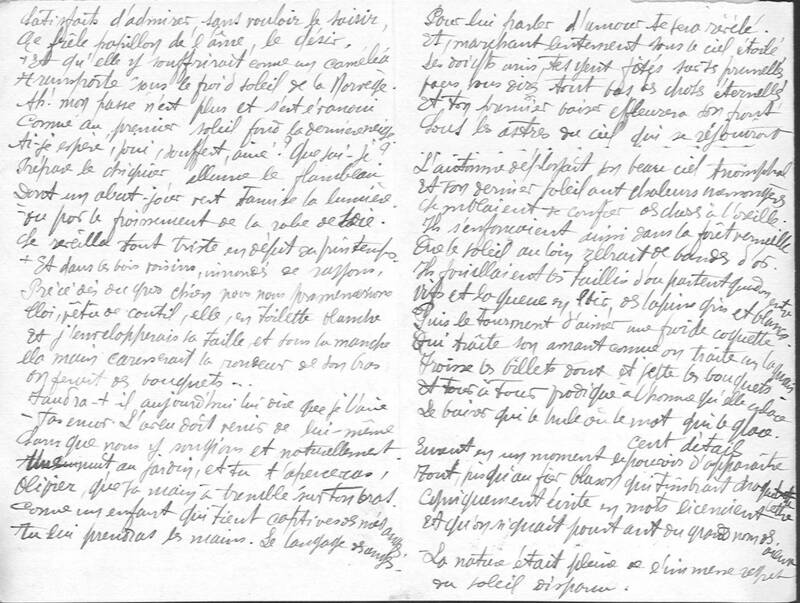 Satisfaits d'admirer sans vouloir le saisir,
Ce frêle papillon de l'âme, le désir.
+ Et qu'elle y souffrirait comme un camélia
transporté sous le froid soleil de la Norvège.
Ah! mon passé n'est plus et s'est évanoui
Comme au premier soleil fond la dernière neige.
Ai-je espéré, joui, souffert, aimé? Que sais-je?
Prépare le échiquier, allume le flambeau
Dont un abat-jour vert tamise la lumière.
ou par le froissement de la robe de soie.
Se réveilla tout triste en dépit du printemps.
+ Et dans les bois voisins, inondés de rayons,
Précédés du gros chien nous nous promènerions
Moi, vêtu de coutil, elle, en toilette blanche
Et j'envelopperais sa taille et sous sa manche
Ma main caresserait la rondeur de son bras
On ferait des bouquets...
Faudra-t-il aujourd'hui lui dire que je l'aime
- Pas encor. L'aveu doit venir de lui-même
Sans que nous y songions et naturellement.
au jardin, et tu t'apercevras,
Olivier, que sa main a tremblé sur ton bras.
Comme un enfant qui tient captives des mésanges
Tu lui prendras les mains. Le langage des anges
Pour lui parler d'amour te sera révélé.
Et, marchant lentement sous le ciel étoilé
Les doigts unis, les yeux fixés sur tes prunelles
vous vous direz tout bas les choses éternelles
Et ton premier baiser effleurera son front
Sous les astres du ciel qui se réjouiront
L'automne déployait son beau ciel triomphal
Et son dernier soleil aux chaleurs
Semblaient se confier des choses à l'oreille.
Ils s'enfonçaient ainsi dans la forêt vermeille
Que le soleil au loin zébrait de bandes d'or.
Ils fouillaient les taillis d'où partent quelquefois
vifs et la queue en l'air, des lapins gris et blancs.
Puis le tourment d'aimer une froide coquette
Qui traite son amant comme on traite un laquais
Froisse les billets doux et jette les bouquets
Et tour à tour prodigue à l'homme qu'elle
Le baiser qui le brûle ou le mot qui le glace.
cent détails
Eurent en un moment le pouvoir d'apparaître
Tout, jusqu'au fier blason qui timbrait chaque lettre
Cyniquement écrite en mots licencieux
Et qu'on signait pourtant du grand nom des aïeux
La nature était pleine de l'immense regret
du soleil disparu.